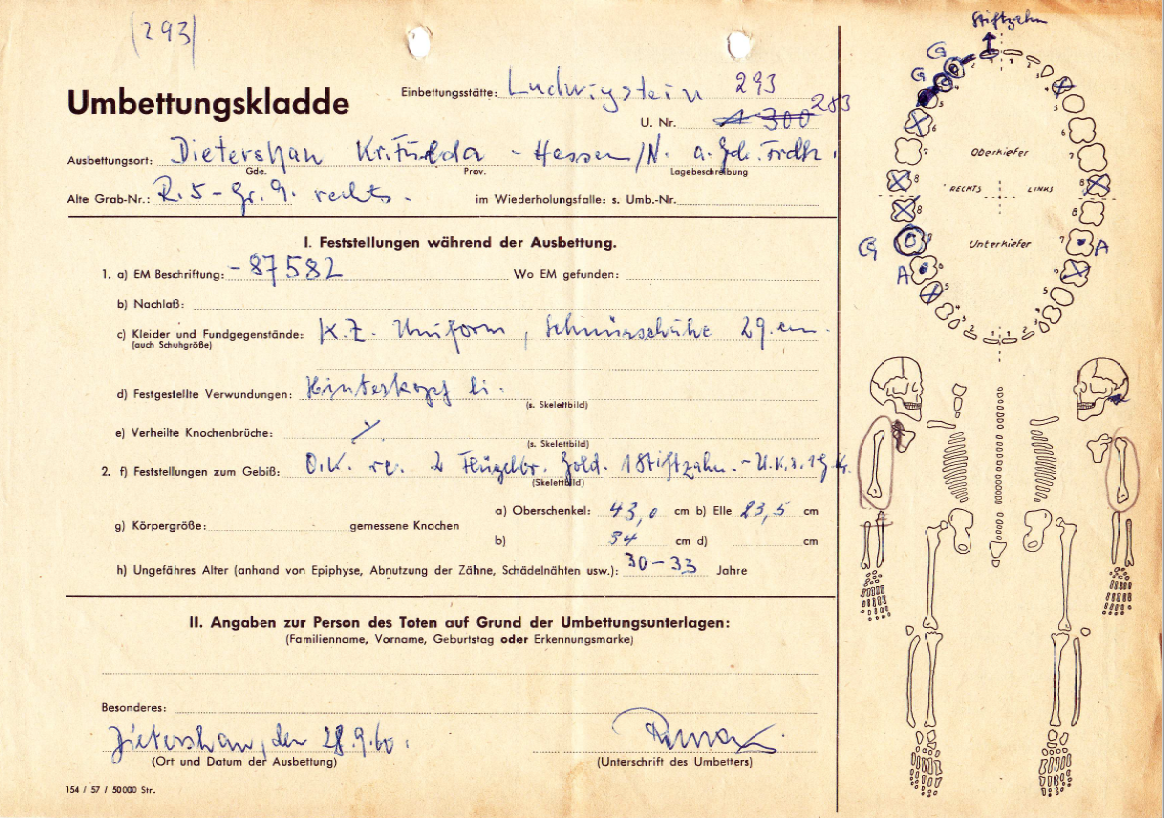 (293)
Stiftzahn
Umbettungskladde
Einbettungsstätte: Ludwigstein 293
U. Nr. 300 283
Ausbettungsort: Dietershan Kr. Fulda - Hessen/N. a. Gde. Frdh.
Gde. Prov. Lagebeschreibung
Alte Grab-Nr.: R. 5 - Gr. 9. rechts. im Wiederholungsfalle: s. Umb.-Nr.
I. Feststellungen während der Ausbettung.
1. a) EM Beschriftung: - 87582 Wo EM gefunden:
b) Nachlaß:
c) Kleider und Fundgegenstände: K.Z. Uniform, Schnürschuhe 29. cm.
(auch Schuhgröße)
d) Festgestellte Verwundungen: Hinterkopf li.
(s. Skelettbild)
e) Verheilte Knochenbrüche:
(s. Skelettbild)
2. f) Feststellungen zum Gebiß: O.K. re. 2 Flügelbr. Gold. 1 Stiftzahn. - U.K. r. 1 G. Kr.
(Skelettbild)
a) Oberschenkel: 43,0 cm b) Elle 23,5 cm
g) Körpergröße: gemessene Knochen
b) 34 cm d) cm
h) Ungefähres Alter (anhand von Epiphyse, Abnutzung der Zähne, Schädelnähten usw.): 30-33 Jahre
II. Angaben zur Person des Toten auf Grund der Umbettungsunterlagen:
(Familienname, Vorname, Geburtstag oder Erkennungsmarke)
Besonderes:
Dietershan, den 28.9.60.
(Ort und Datum der Ausbettung) (Unterschrift des Umbetters)
154 / 57 / 50000 Str.
G
G
Oberkiefer
RECHTS LINKS
Unterkiefer
G
A
A